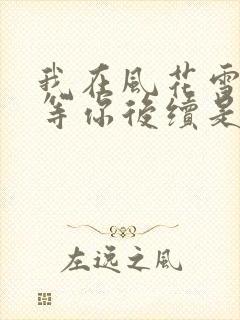 我在風花雪
等你後續是
左远之風